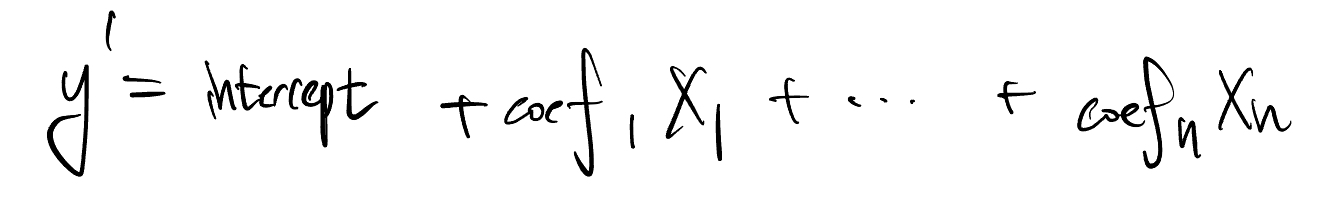 y' = intercept + coef₁ X₁ + ... + coefₙ Xₙ